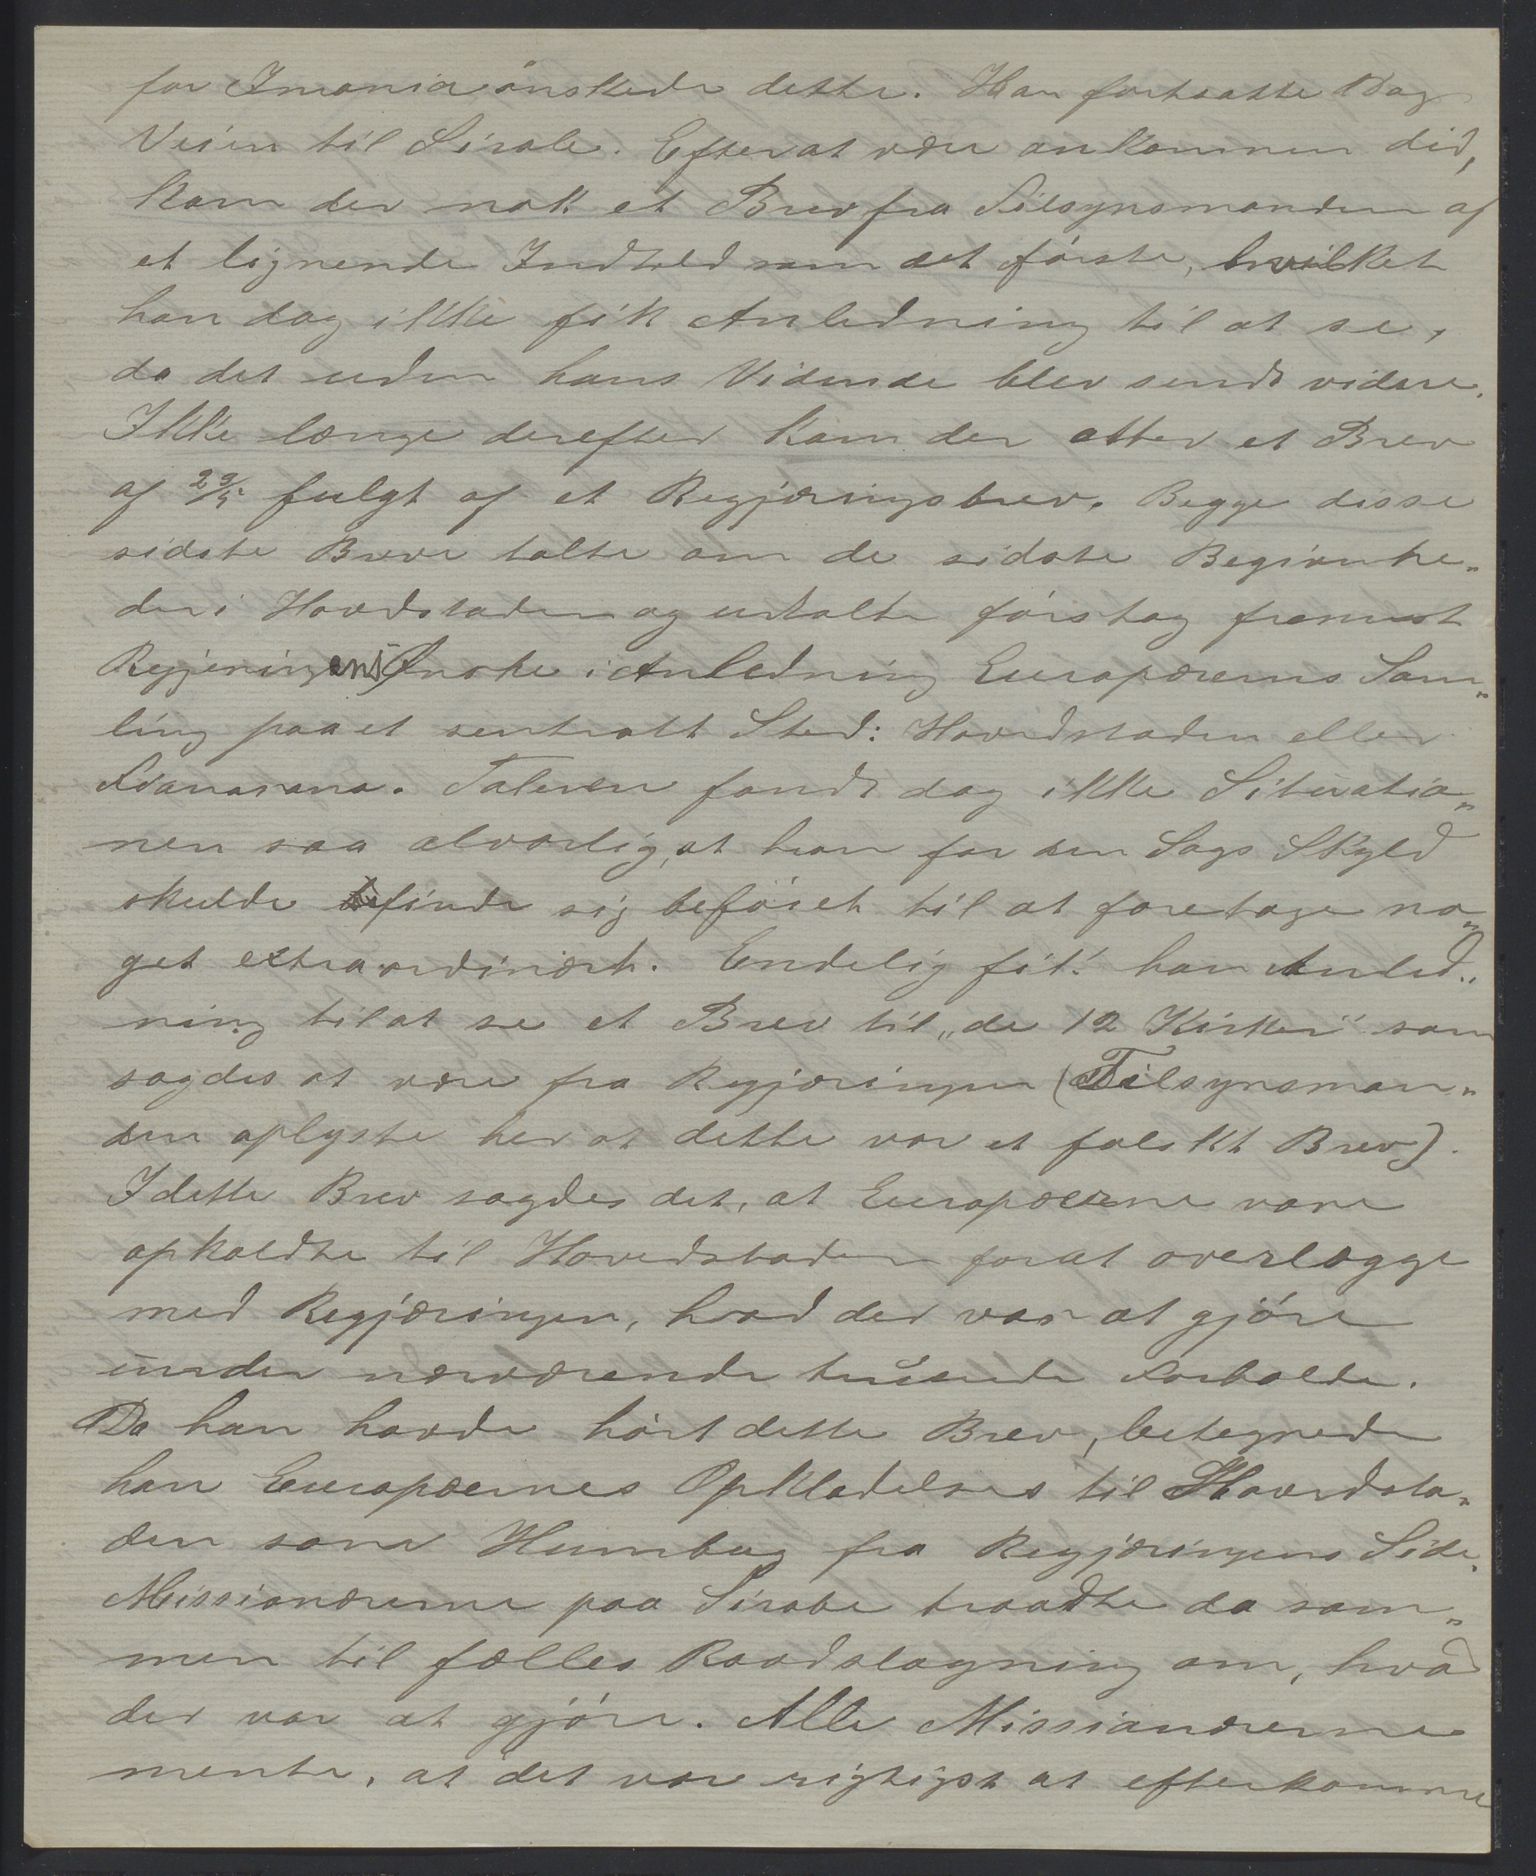 for Imania ønskede dette. Han fortsatte dog
Veien til Sirabe. Efterat være ankommen did,
kom der nok et Brev fra Tilsynsmanden af
et lignende Indhold som det første, hvilket
han dog ikke fik Anledning til at se,
da det uden hans Vidende blev sendt videre.
Ikke længe derefter kom der atter et Brev
af fulgt af et Regjæringsbrev. Begge disse
sidste Breve talte om de sidste Begivenhe„
der i Hovedstaden og udtalte først og fremst
Regjeringens Ønske i Anledning Europæernes Sam„
ling paa et sentralt Sted: Hovedstaden eller
Fianarana. Taleren fandt dog ikke Situatio„
nen saa alvorlig, at han for den Sags Skyld
skulde finde sig beføiet til at foretage no„
get extraordinært. Endelig fik han Anled„
ning til at se et Brev til „de 12 Kirker" som
sagdes at være fra Regjæringen (Tilsynsman„
den oplyste her at dette var et falskt Brev).
I dette Brev sagdes det, at Europæerne vare
opkaldte til Hovedstaden forat overlægge
med Regjæringen, hvad der var at gjøre
under nærværende truende Forholde.
Da han havde hørt dette Brev, betegnede
han Europæernes Opkladelses til Hovedsta„
den som Humbug fra Regjæringens Side.
Missionærerne paa Sirabe traadte da sam„
men til fælles Raadslagning om, hvad
der var at gjøre. Alle Missionærerne
mente, at det var rigtigst at efterkomme